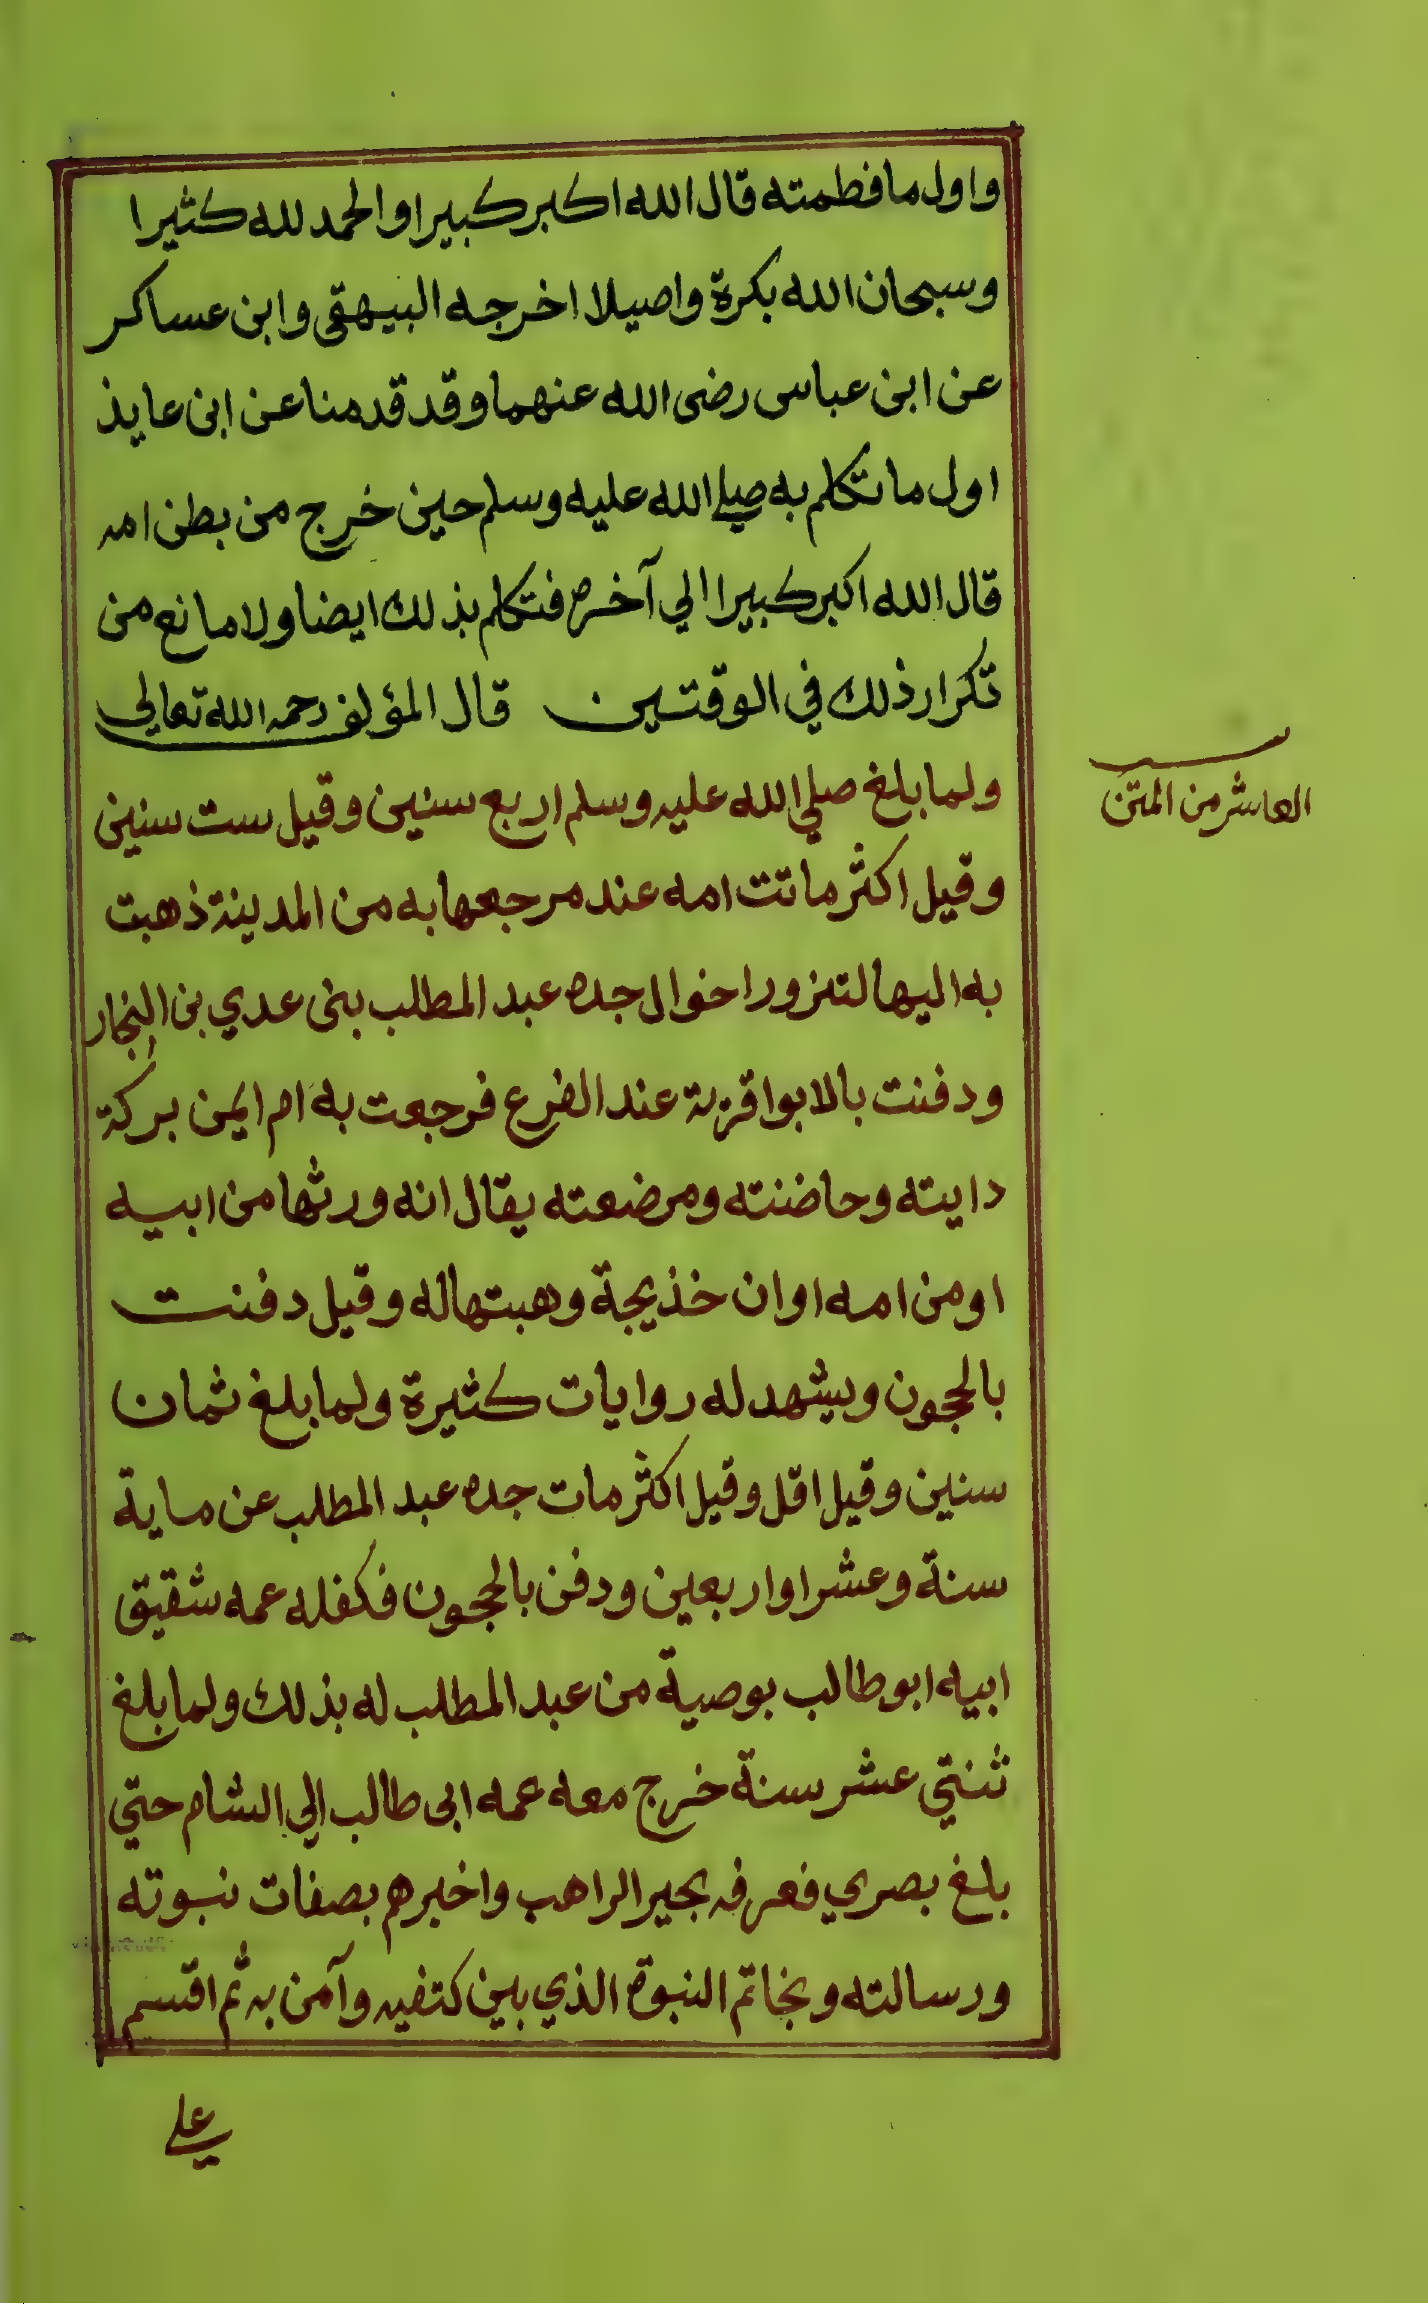 واول ما فطمته قال الله اكبر كبيرا والحمد لله كثيرا
وسبحان الله بكرة واصيلا اخرجه البيهقي وابن عساكر
عن ابن عباس رضى الله عنهما وقد قدمنا عن ابن عايذ
اول ما تكلم به صلى الله عليه وسلم حين خرج من بطن امه
قال الله اكبر كبيرا الي آخره فتكلم بذلك ايضا ولا مانع من
تكرار ذلك في الوقتين قال المؤلف رحمه الله تعالي
ولما بلغ صلي الله عليه وسلم اربع سنين وقيل ست سنين
العاشر من المتن
وقيل اكثر ماتت امه عند مرجعها به من المدينة ذهبت
به اليها لتزور اخوال جده عبد المطلب بنى عدي بن النجار
ودفنت بالابوا قرية عند الفرع فرجعت به ام ايمن بركة
دايته وحاضنته ومرضعته يقال انه ورثها من ابيه
او من امه او ان خذيجة وهبتها له وقيل دفنت
بالحجون ويشهد له روايات كثيرة ولما بلغ ثمان
سنين وقيل اقل وقيل اكثر مات جده عبد المطلب عن ماية
سنة وعشر او اربعين ودفن بالحجون فكفله عمه شقيق
ابيه ابو طالب بوصية من عبد المطلب له بذلك ولما بلغ
ثنتي عشر سنة خرج معه عمه ابى طالب الي الشام حتي
بلغ بصري فعرفه بحير الراهب واخبرهم بصفات نبوته
ورسالته وبخاتم النبوة الذي بين كتفيه وآمن به ثم اقسم
على